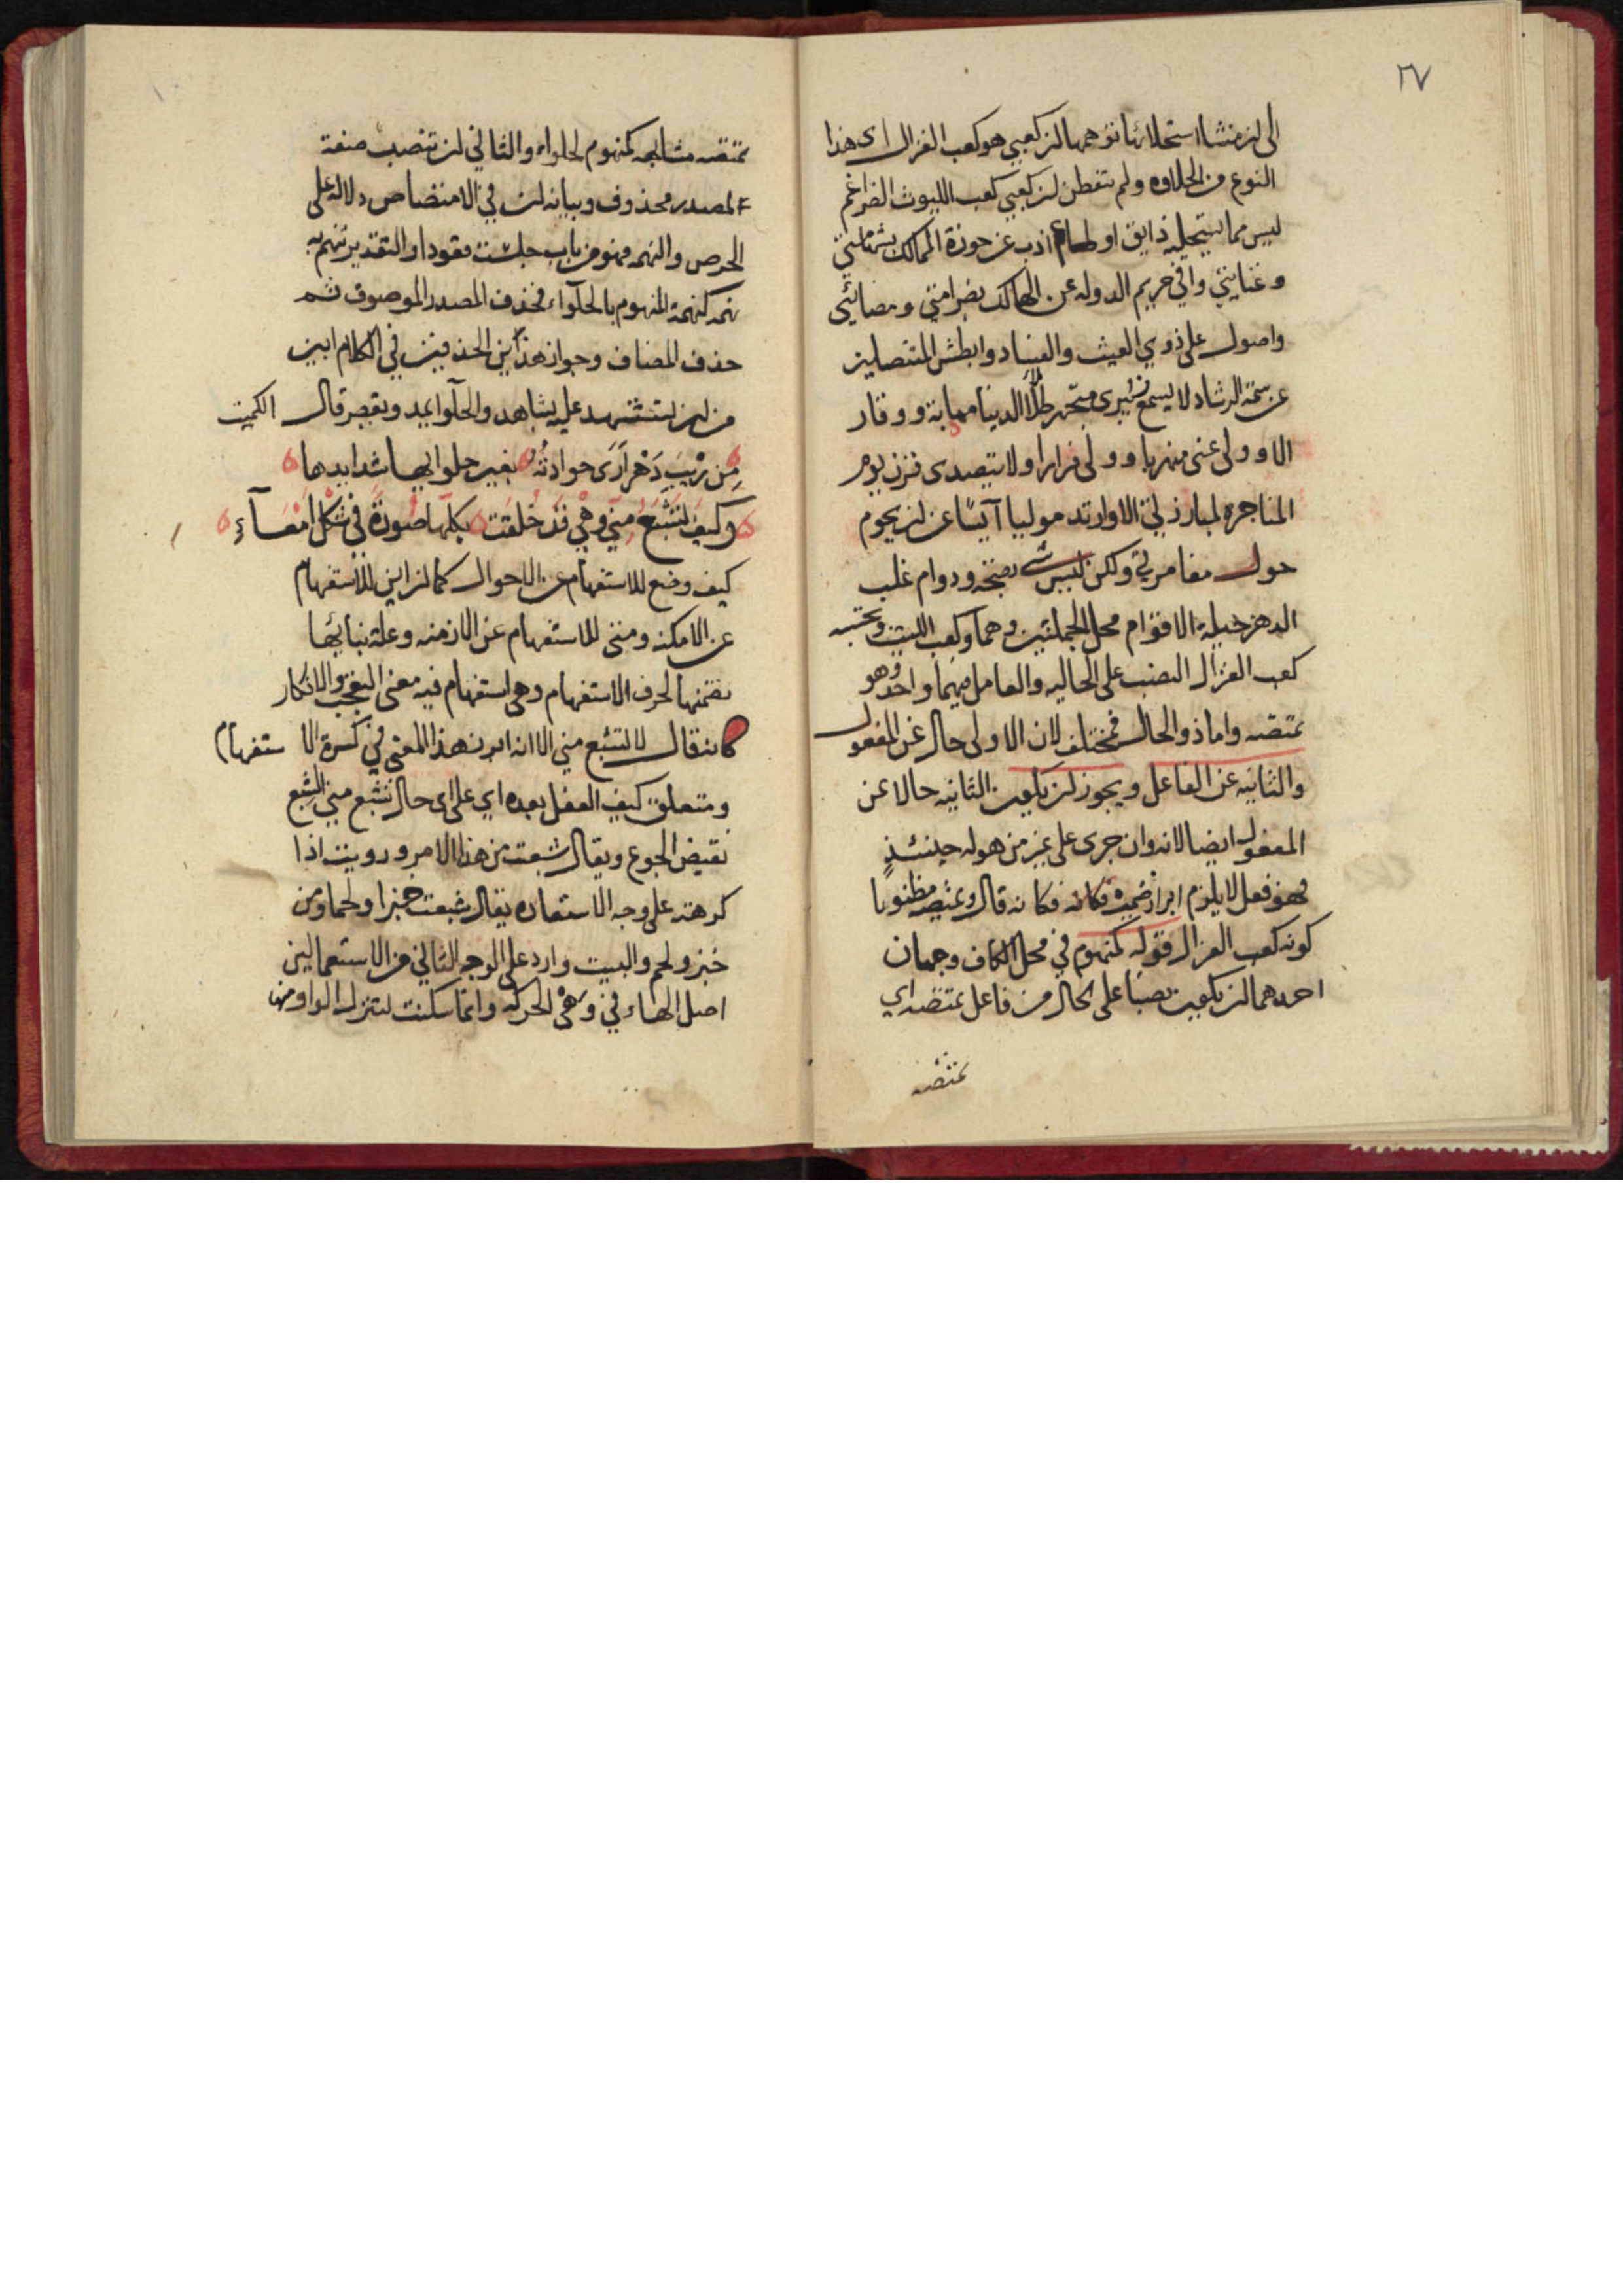 ٢٧
الى ان منشا استحلائها توهمها ان كعبي هو كعب الغزال اى هذا
النوع من الحلاوه ولم تتفطن ان كعبي كعب الليوث الضراغم
ليس مما يستحليه ذايق او طاعم اذب عن حوزة الممالك بشهامتي
وعنايتي واقي حريم الدوله عن المهالك بصرامتي ومضائي
واصول على ذوي العيث والفساد وابطش المتنصلين
عن سمة الرشاد لا يسمع زئيرى متجهر ملأ الدنيا مهابة ووقار
الا وولى عنى منهربا وولى فرارا ولا يتصدى قرن يوم
المناجزه لمبارزتي الا وارتد موليا آيسا عن ان يحوم
حول مغامرتي ولكن ليس شي بصنجه ودوام غلب
الدهر خيلة الاقوام محل الجملتين وهما وكعب الليث وتحتسبه
كعب الغزال النصب على الحاليه والعامل فيهما واحد وهو
تمتصه واما ذو الحال فمختلف لان الاولى حال عن المفعول
والثانيه عن الفاعل ويجوز ان يكون الثانيه حالا عن
المفعول ايضا لانه وان جرى على غير من هو له حينئذٍ
فهو فعل لا يلزم ابراز ضميره فكانه قال وتمتصه مظنونا
كونه كعب الغزال قوله كمنهوم في محل الكاف وجهان
احدهما ان يكون نصبا على الحال من فاعل تمتصه اي
تمتصه
تمتصه مشابهه كمنهوم لحلواء والثاني ان تنصب صفة
لمصدر محذوف وبيانه ان في الامتصاص دلاله على
الحرص والنهم فهو من باب جلست قعودا والتقدير تنهم به
نهمة كنهمة المنهوم بالحلواء فحذف المصدر الموصوف ثم
حذف المضاف وجواز هذين الحذفين في الكلام ابين
من ان يستشهد عليه بشاهد والحلوا يمد ويقصر قال الكميت
مِن رَيْبِ دَهْرٍ أرَى حوادثُهُ بغير حلوايها شدايدها
وكيف تشْبَعُ مِنّي وهْيَ قد خُلقت بكلّها صُورةً في شكل أمعآءِ
كيف وضع للاستفهام عن الاحوال كما ان اين للاستفهام
عن الامكنه ومتى للاستفهام عن الازمنه وعلة بنائها
تضمنها لحرف الاستفهام وهى استفهام فيه معنى التعجب والانكار
كانه قال لا تشبع مني الا انه ابرز هذا المعنى في كسوة الاستفهام
ومتعلق كيف الفعل بعده اي على اى حال تشبع مني الشبع
نقيض الجوع ويقال شبعت من هذا الامر ورويت اذا
كرهته على وجه الاستعاره يقال شبعت خبزا ولحما ومن
خبز ولحم والبيت وارد على الوجه الثاني من الاستعمالين
اصل الهاء في وهْي الحركه وانما سكنت لتنزل الواو منها